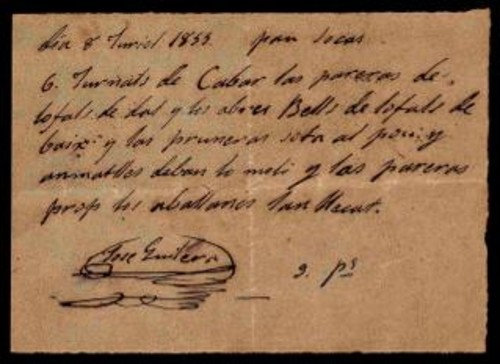 Dia 8 Juriol 1855. pan secas
6. Jurnats de Cabar las pareras de
tofals de dal y les abres Bells de tofals de
baix y las pruneras sota al pou y
animatllos deban lo moli y las pareras
prop les aballanes
Jose Guitera
3. ps